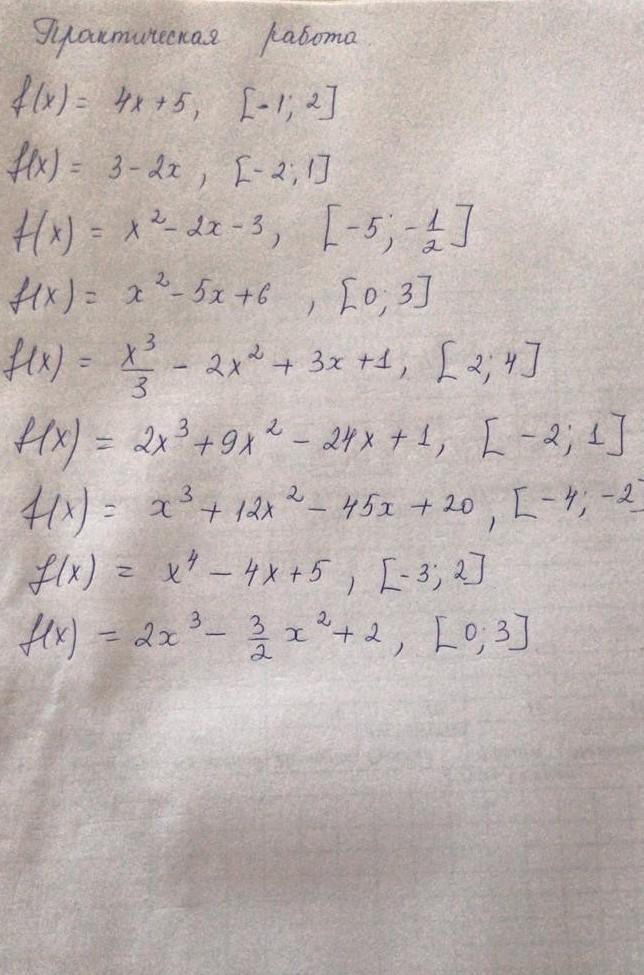 Практическая работа
f(x) = 4x + 5, [-1; 2]
f(x) = 3 - 2x, [-2; 1]
f(x) = x² - 2x - 3, [-5; -1/2]
f(x) = x² - 5x + 6, [0; 3]
f(x) = x³/3 - 2x² + 3x + 1, [2; 4]
f(x) = 2x³ + 9x² - 24x + 1, [-2; 1]
f(x) = x³ + 12x² - 45x + 20, [-4; -2]
f(x) = x⁴ - 4x + 5, [-3; 2]
f(x) = 2x³ - 3/2 x² + 2, [0; 3]